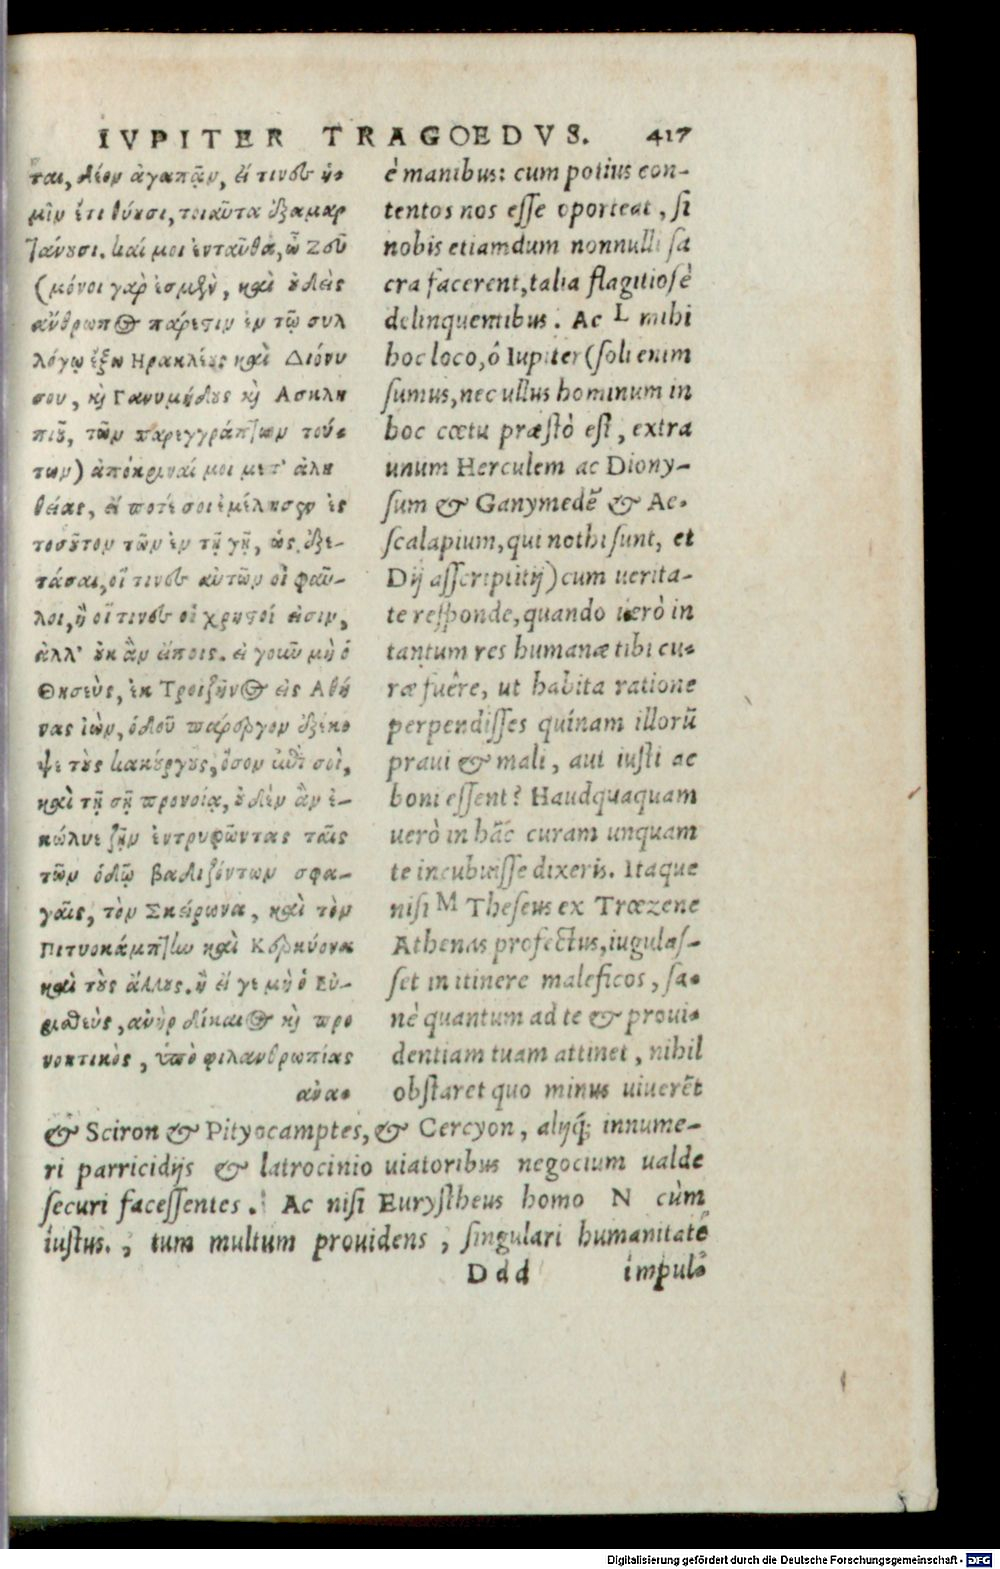 IVPITER TRAGOEDVS. 417
ται, δέον ἀγαπᾷν, εἴ τινες ἡ-
μῖν ἔτι θύουσι, τοιαῦτα ἐξαμαρ
τάνουσι. καί μοι ἐνταῦθα, ὦ Ζεῦ
(μόνοι γάρ ἐσμεν, καὶ οὐδεὶς
ἄνθρωπος πάρεστιν ἐν τῷ συλ
λόγῳ ἔξω Ηρακλέους καὶ Διόνυ
σου, καὶ Γανυμήδους καὶ Ασκλη
πιοῦ, τῶν παρεγγράπτων τού-
των) ἀπόκριναί μοι μετ' ἀλη
θείας, εἴ ποτέ σοι ἐμέλησεν ἐς
τοσοῦτον τῶν ἐν τῇ γῇ, ὡς ἐξε-
τάσαι, οἵ τινες αὐτῶν οἱ φαῦ-
λοι, ἢ οἵ τινες οἱ χρηστοί εἰσιν,
ἀλλ' οὐκ ἂν εἴποις. εἰ γοιῦν μὴ ὁ
Θησεὺς, ἐκ Τροιζῆνος εἰς Αθή
νας ἰὼν, ὁδοῦ πάρεργον ἐξέκο
ψε τοὺς κακούργους, ὅσον ἐπὶ σοὶ,
καὶ τῇ σῇ προνοίᾳ, οὐδὲν ἂν ἐ-
κώλυε ζῇν ἐντρυφῶντας ταῖς
τῶν ὁδῷ βαδιζόντων σφα-
γαῖς, τὸν Σκείρωνα, καὶ τὸν
Πιτυοκάμπτην καὶ Κερκύονα
καὶ τοὺς ἄλλους. ἢ εἴ γε μὴ ὁ Εὐ-
ρυσθεὺς, ἀνὴρ δίκαιος καὶ προ
νοητικὸς, ὑπὸ φιλανθρωπίας
ανα-
è manibus: cum potius con-
tentos nos esse oporteat, si
nobis etiamdum nonnulli sa
cra facerent, talia flagitiosè
delinquentibus. Ac L mihi
hoc loco, ô Iupiter (soli enim
sumus, nec ullus hominum in
hoc cœtu præstò est, extra
unum Herculem ac Diony-
sum & Ganymedẽ & Ae-
scalapium, qui nothi sunt, et
Dij asscriptitij) cum uerita-
te responde, quando uerò in
tantum res humanæ tibi cu-
ræ fuêre, ut habita ratione
perpendisses quínam illorũ
praui & mali, aut iusti ac
boni essent? Haudquaquam
uerò in hãc curam unquam
te incubuisse dixeris. Itaque
nisi M Theseus ex Trœzene
Athenas profectus, iugulas-
set in itinere maleficos, sa-
nè quantum ad te & proui-
dentiam tuam attinet, nihil
obstaret quo minus uiuerẽt
& Sciron & Pityocamptes, & Cercyon, alijq́; innume-
ri parricidijs & latrocinio uiatoribus negocium ualde
securi facessentes. Ac nisi Eurystheus homo N cùm
iustus., tum multum prouidens, singulari humanitatẽ
Ddd impul-
Digitalisierung gefördert durch die Deutsche Forschungsgemeinschaft - DFG